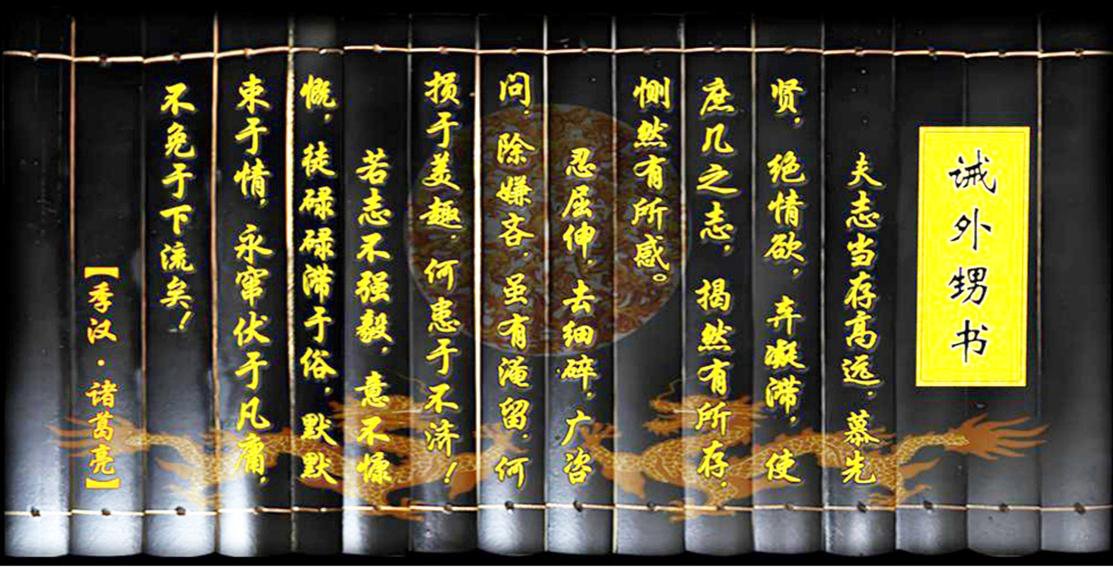 诫外甥书
夫志当存高远，慕先
贤，绝情欲，弃凝滞，使
庶几之志，揭然有所存，
恻然有所感。
忍屈伸，去细碎，广咨
问，除嫌吝，虽有淹留，何
损于美趣，何患于不济！
若志不强毅，意不慷
慨，徒碌碌滞于俗，默默
束于情，永窜伏于凡庸，
不免于下流矣！
【季汉·诸葛亮】